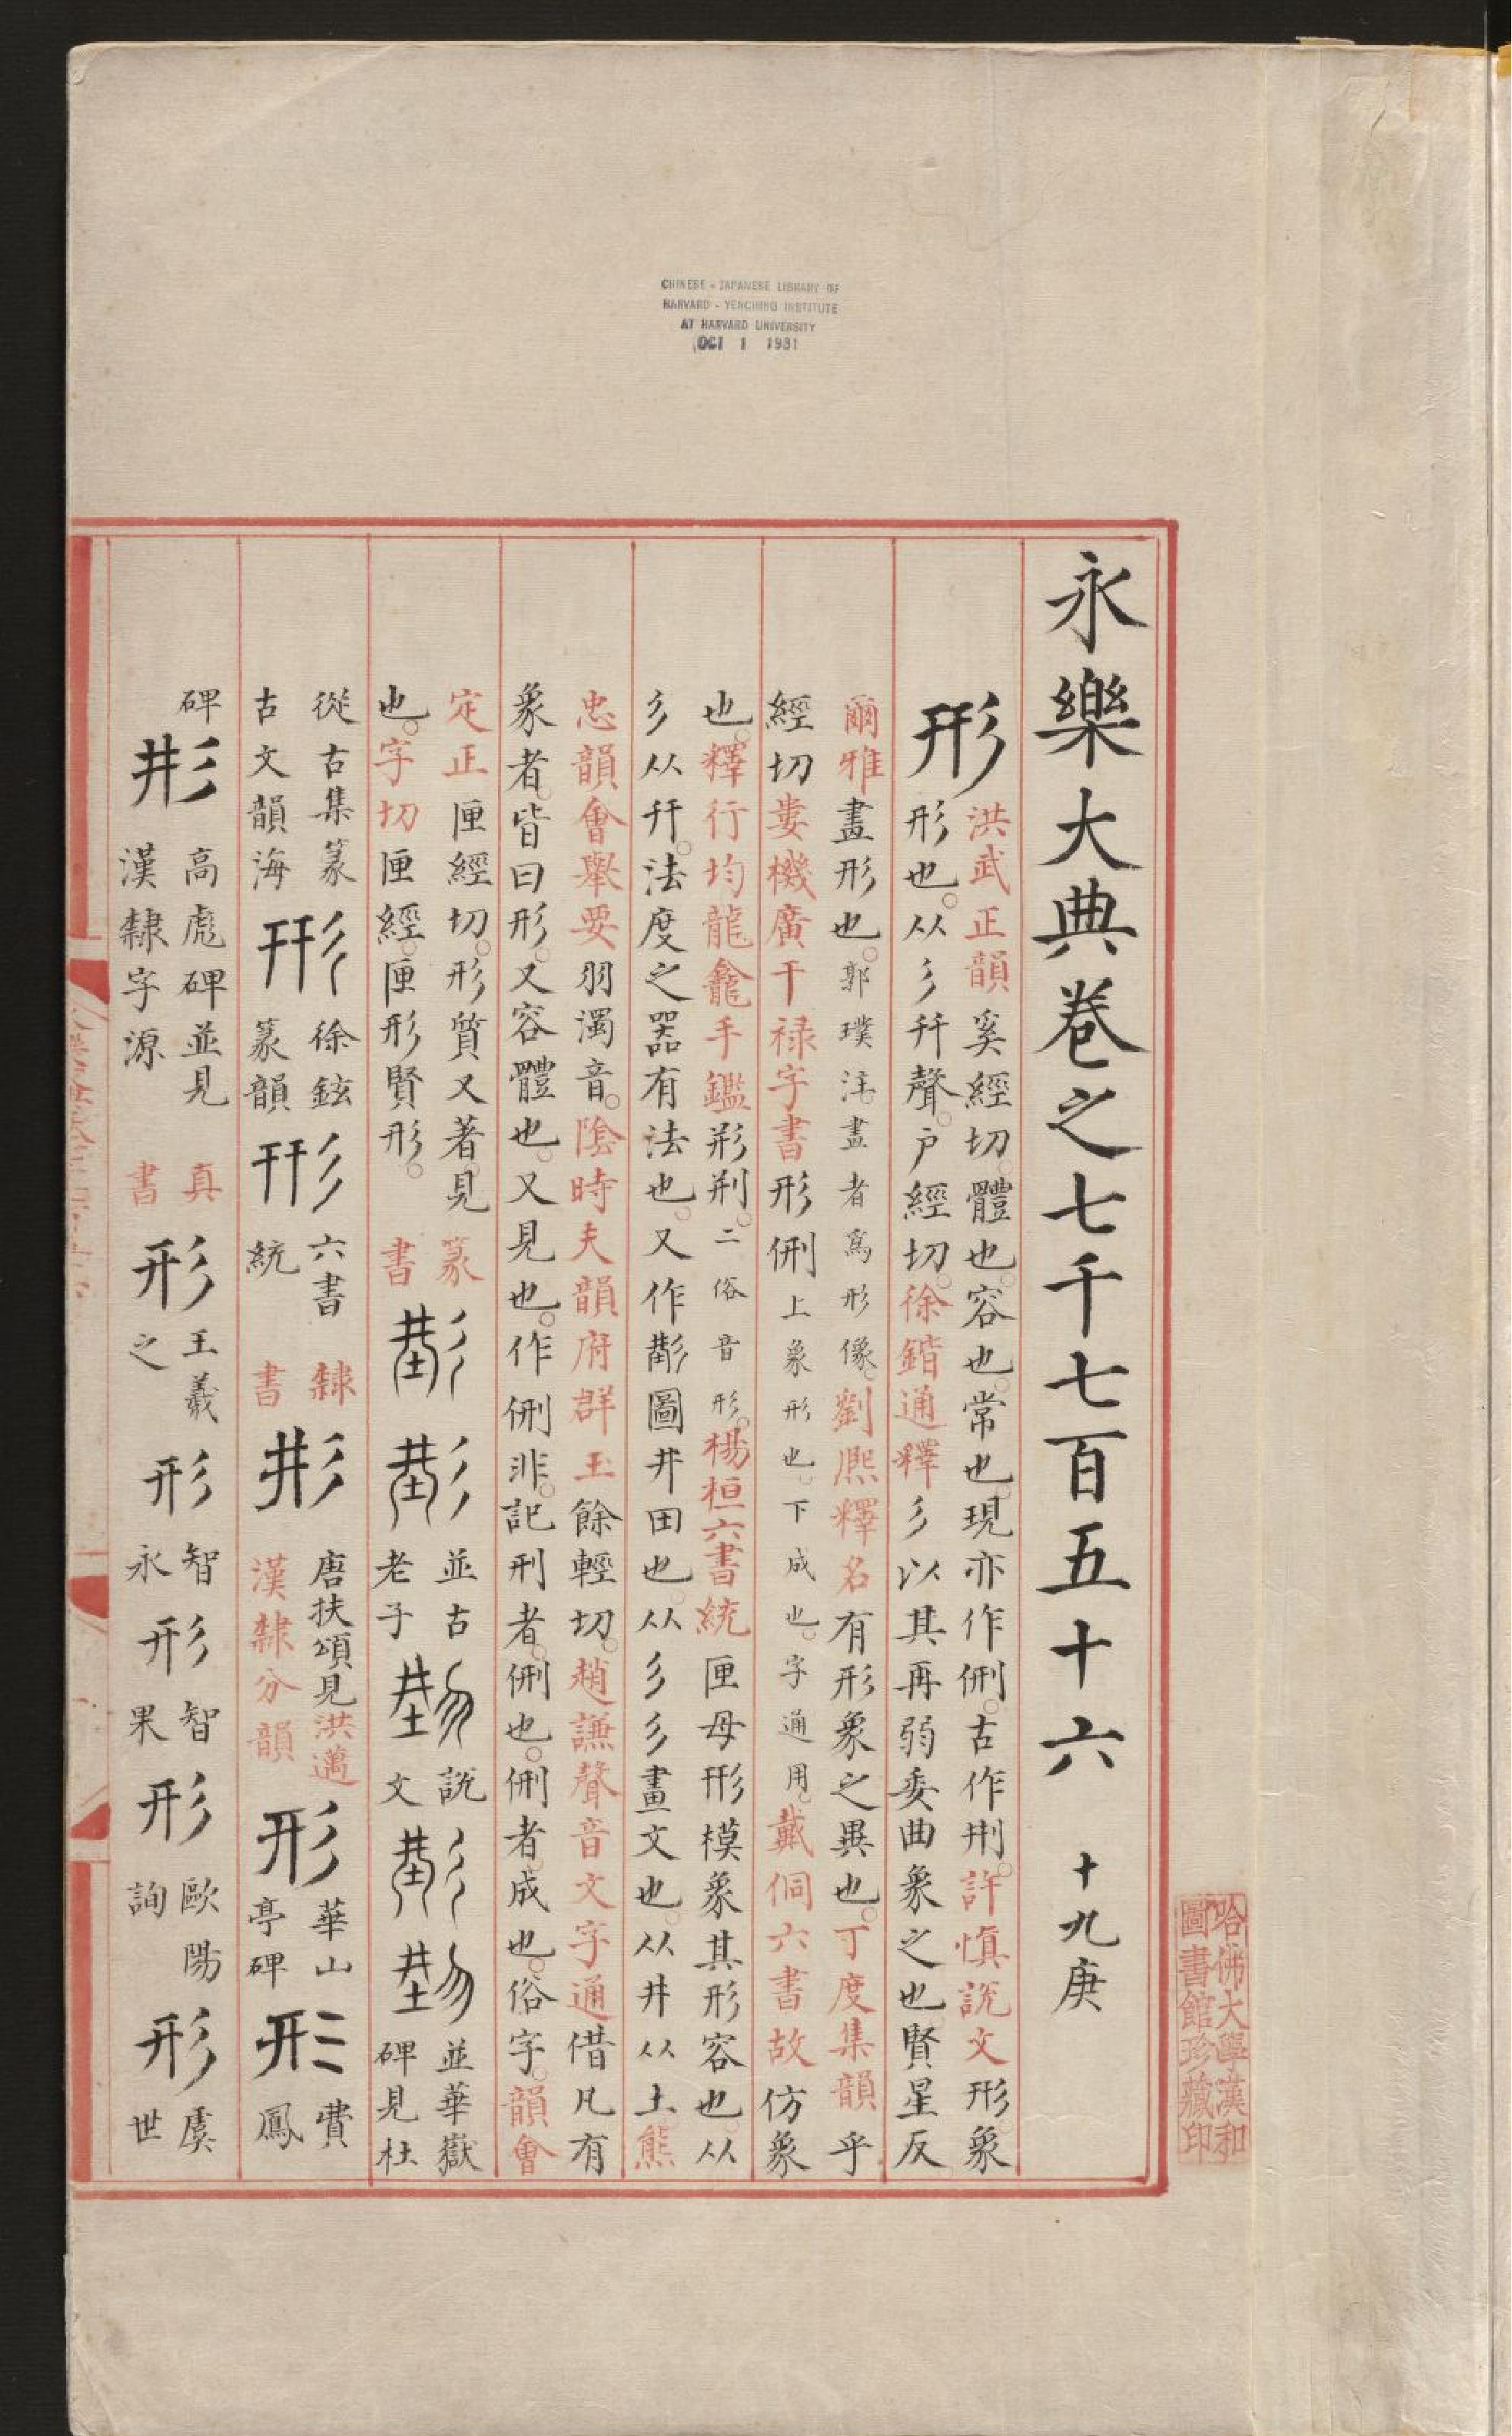 CHINESE - JAPANESE LIBRARY OF
HARVARD - YENCHING INSTITUTE
AT HARVARD UNIVERSITY
OCT 1 1931
永樂大典卷之七千七百五十六 十九庚
形
洪武正韻奚經切。體也。容也。常也。現亦作侀。古作㓝。許慎說文形象
形也。从彡幵聲。户經切。徐鍇通釋彡以其再弱委曲象之也賢星反
爾雅畫形也。郭璞注。畫者為形像。劉熈釋名有形象之異也。丁度集韻乎
經切婁機廣干禄字書形侀上象形也。下成也。字通用。戴侗六書故仿象
也。釋行均龍龕手鑑形荆。二俗音形。楊桓六書統匣母形模象其形容也。从
彡从幵。法度之器有法也。又作𢒈圖井田也。从彡彡畫文也。从井从土熊
忠韻會舉要羽濁音。陰時夫韻府群玉餘輕切。趙謙聲音文字通借凡有
象者。皆曰形。又容體也。又見也。作侀非。記刑者。侀也。侀者。成也。俗字。韻會
定正匣經切。形質又著見
也。字切匣經。匣形賢形。
篆書
並古老子
說文
並華嶽碑見杜
從古集篆古文韻海
形
徐鉉篆韻
形
六書統
隸書
形
唐扶頌見洪邁漢隸分韻
形
華山亭碑
形
費鳳
碑
形
高彪碑並見漢隸字源
真書
形
王羲之
形
智永
形
智果
形
歐陽詢
形
虞世
哈佛大學漢和
圖書館珍藏印